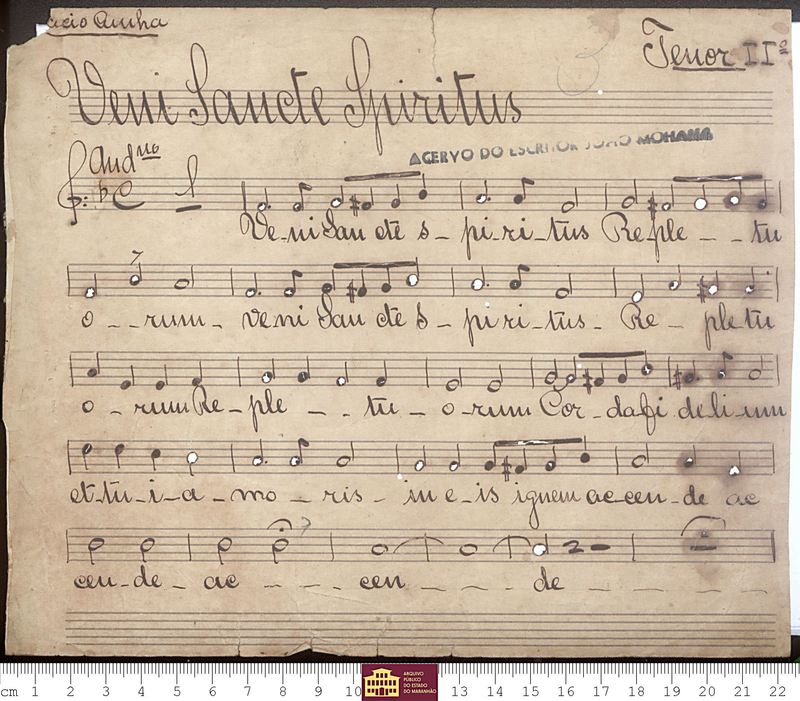 acio Cunha
Tenor IIº
Veni Sancte Spiritus
ACERVO DO ESCRITOR JOÃO MOHANA
And no
Ve-ni San cte s- pi-ri-tus Re-ple - - tu
o - - rum- ve ni San cte s- pi ri-tus- Re - ple tu
o - rum Re-ple - - tu - o-rum Cor-da fi de li-um
et tu-i-a-mo-ris- in e-is ignem ac cen-de ac
cen-de- ac - - - cen - - - de - - - - -
cm 1 2 3 4 5 6 7 8 9 10 13 14 15 16 17 18 19 20 21 22
ARQUIVO
PÚBLICO
DO ESTADO
DO MARANHÃO